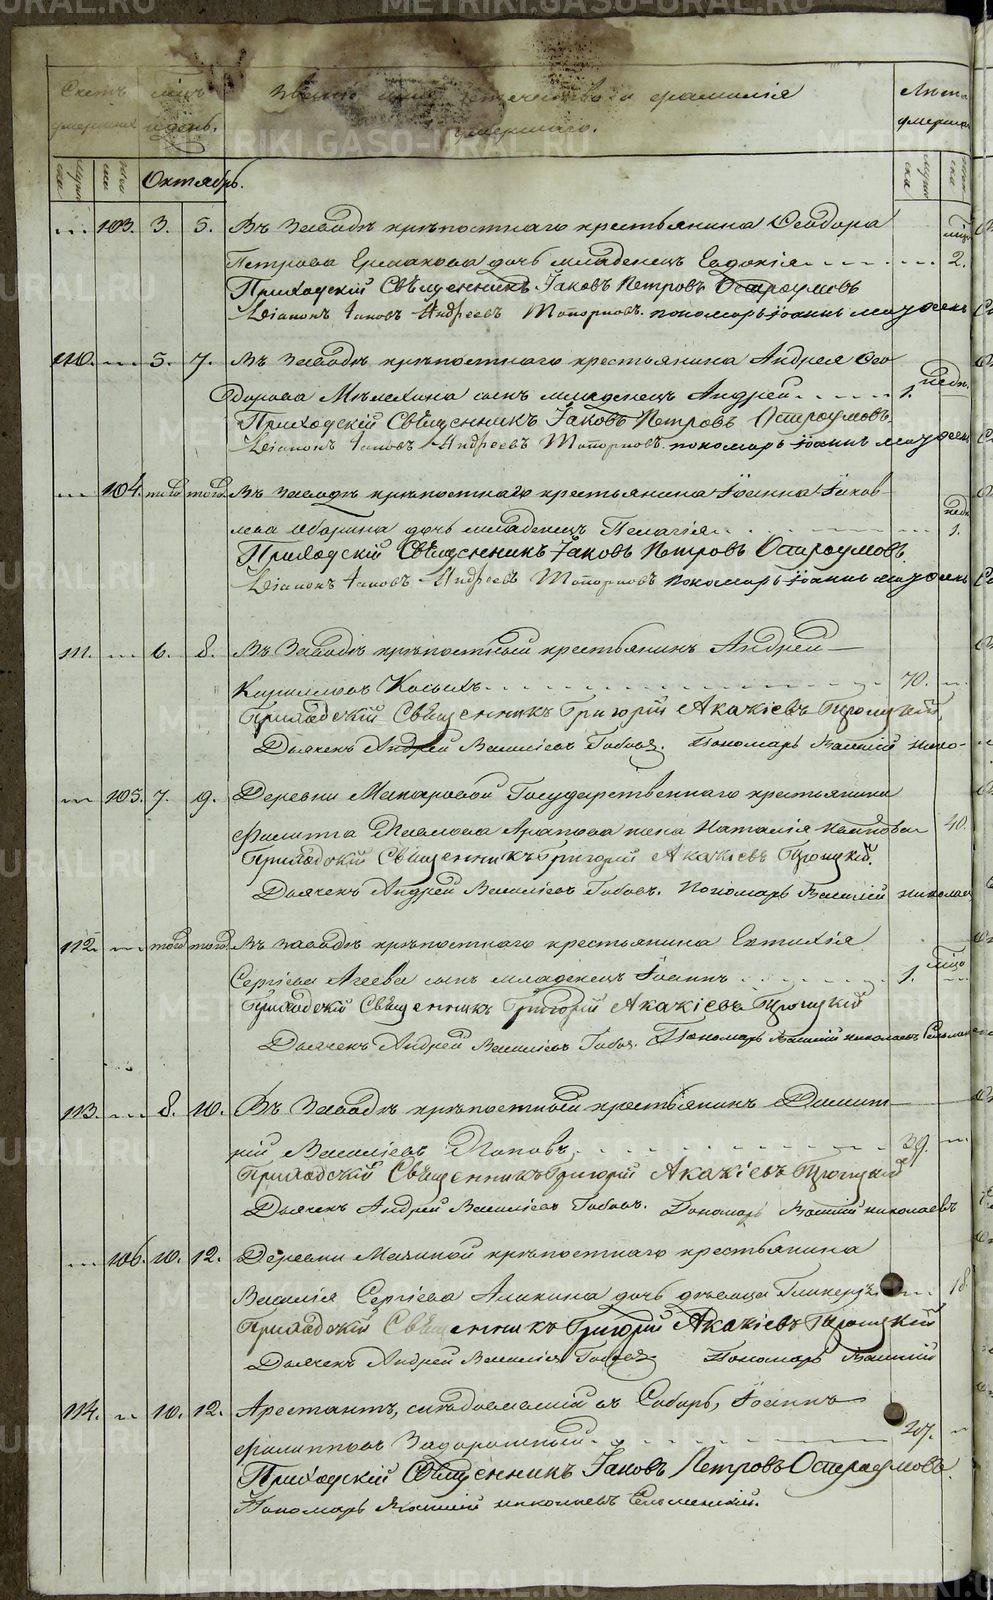 METRIKI.GASO-URAL.RU
Счетъ умершихъ
мѣсяцъ и день.
Званіе имя отчество и фамилія умершаго.
Лѣта умершаго
Октябрь.
103. 3. 5. Въ Заводѣ крѣпостнаго крестьянина Ѳеодора
Петрова Ермакова дочь младенецъ Евдокія 2.
Приходскій Священникъ Іаковъ Петровъ Остроумовъ
Діаконъ Іаковъ Андреевъ Топорковъ. пономарь Іоаннъ
110. 5. 7. Въ Заводѣ крѣпостнаго крестьянина Андрея Ѳео
дорова сынъ младенецъ Андрей 1.
Приходскій Священникъ Іаковъ Петровъ Остроумовъ.
Діаконъ Іаковъ Андреевъ Топорковъ. пономарь Іоаннъ
104. того того Въ Заводѣ крѣпостнаго крестьянина Іоанна Іаков-
лева Оборина дочь младенецъ Пелагія 1.
Приходскій Священникъ Іаковъ Петровъ Остроумовъ.
Діаконъ Іаковъ Андреевъ Топорковъ пономарь Іоаннъ
111. 6. 8. Въ Заводѣ крѣпостный крестьянинъ Андрей
Кирилловъ Косыхъ 70.
Приходскій Священникъ Григорій Акакіевъ Троицкій.
Дьячекъ Андрей Василіевъ Бабовъ. Пономарь Василій Нико-
105. 7. 9. Деревни Макаровой Государственнаго крестьянина
Филиппа Павлова Арапова жена Наталія 40.
Приходскій Священникъ Григорій Акакіевъ Троицкій.
Дьячекъ Андрей Василіевъ Бабовъ. Пономарь Василій Николаев
112. того того. Въ заводѣ крѣпостнаго крестьянина Евтихія
Сергіева Агеева сынъ младенецъ Іоаннъ 1.
Приходскій Священникъ Григорій Акакіевъ Троицкій
Дьячекъ Андрей Василіевъ Бабов. Пономарь Василій Николаевъ
113. 8. 10. Въ Заводѣ крѣпостный крестьянинъ Димит-
рій Василіевъ Поповъ 39.
Приходскій Священникъ Григорій Акакіевъ Троицкій
Дьячекъ Андрей Василіевъ Бабовъ. Пономарь Василій Николаевъ
106. 10. 12. Деревни Мазиной крѣпостнаго крестьянина
Василія Сергіева Аликина дочь дѣвица Гликерія 18
Приходскій Священникъ Григорій Акакіевъ Троицкій
Дьячекъ Андрей Василіев Бабовъ Пономарь Василій
114. 10. 12. Арестантъ, слѣдовавшій въ Сибирь, Іоаннъ
Филипповъ Задорожный 37.
Приходскій Священникъ Іаковъ Петровъ Остроумовъ
Пономарь Василій Николаевъ